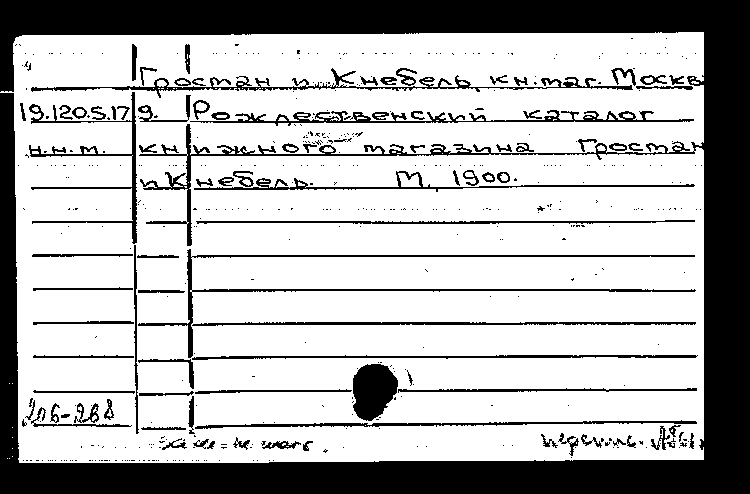 Гростан и Кнебель, кн. маг. Москв
19.120.5.17 9. Рождественский каталог
н.н.м. книжного магазина Гростан
и Кнебель. М., 1900.
206-268